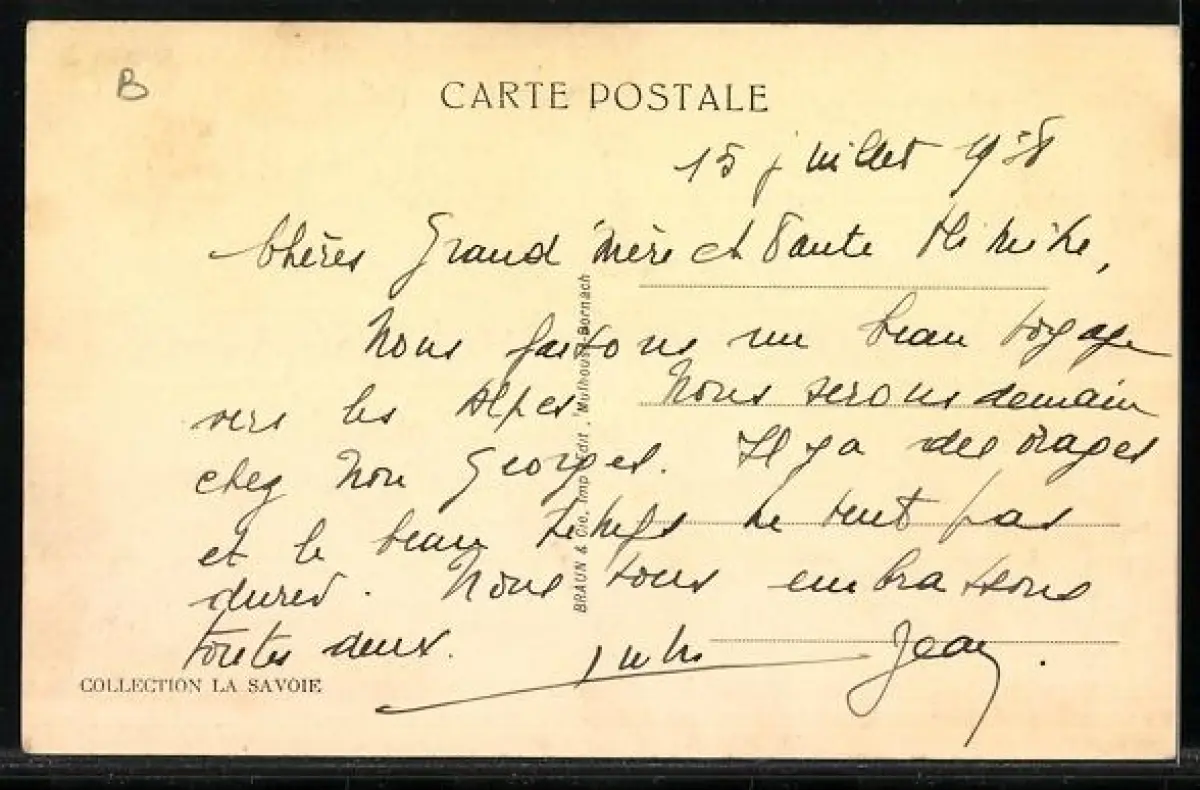 B
CARTE POSTALE
15 juillet 1938
Chères Grand'mère et Tante
Nous faisons un beau voyage
vers les Alpes. Nous serons demain
chez Georges. Il y a des orages
et le beau temps ne veut pas
durer. Nous vous embrassons
toutes deux.
Jean.
COLLECTION LA SAVOIE
BRAUN & Cie, Imp.-Edit., Mulhouse-Dornach